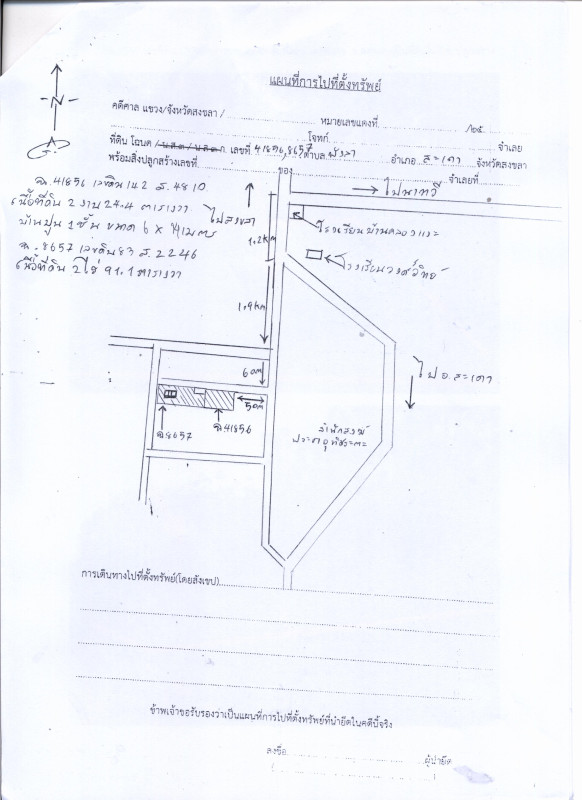 แผนที่การไปที่ตั้งทรัพย์
N
คดีศาล แขวง/จังหวัดสงขลา / หมายเลขแดงที่ /๒๕
โจทก์ จำเลย
ที่ดิน โฉนด เลขที่ 41856, 8657 ตำบล พังลา อำเภอ สะเดา จังหวัดสงขลา
พร้อมสิ่งปลูกสร้างเลขที่ ของ จำเลยที่
ฉ.41856 เลขดิน 142 ส. 4810
เนื้อที่ดิน 2 งาน 24.4 ตารางวา
บ้านปูน 1 ชั้น ขนาด 6 x 14 เมตร
ฉ. 8657 เลขดิน 83 ส. 2246
เนื้อที่ดิน 2 ไร่ 91.1 ตารางวา
ไปสงขลา
ไปนาทวี
โรงเรียนบ้านคลองแงะ
1.2km
โรงเรียนวงศ์วิทย์
1.9km
ไป อ.สะเดา
60m
50m
ฉ.8657
ฉ.41856
สำนักสงฆ์
การเดินทางไปที่ตั้งทรัพย์(โดยสังเขป)
ข้าพเจ้าขอรับรองว่าเป็นแผนที่การไปที่ตั้งทรัพย์ที่นำยึดในคดีนี้จริง
ลงชื่อ ผู้นำยึด
( )